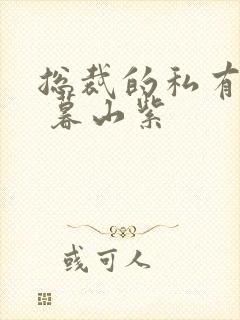 总裁的私有
暮山紫
或可人